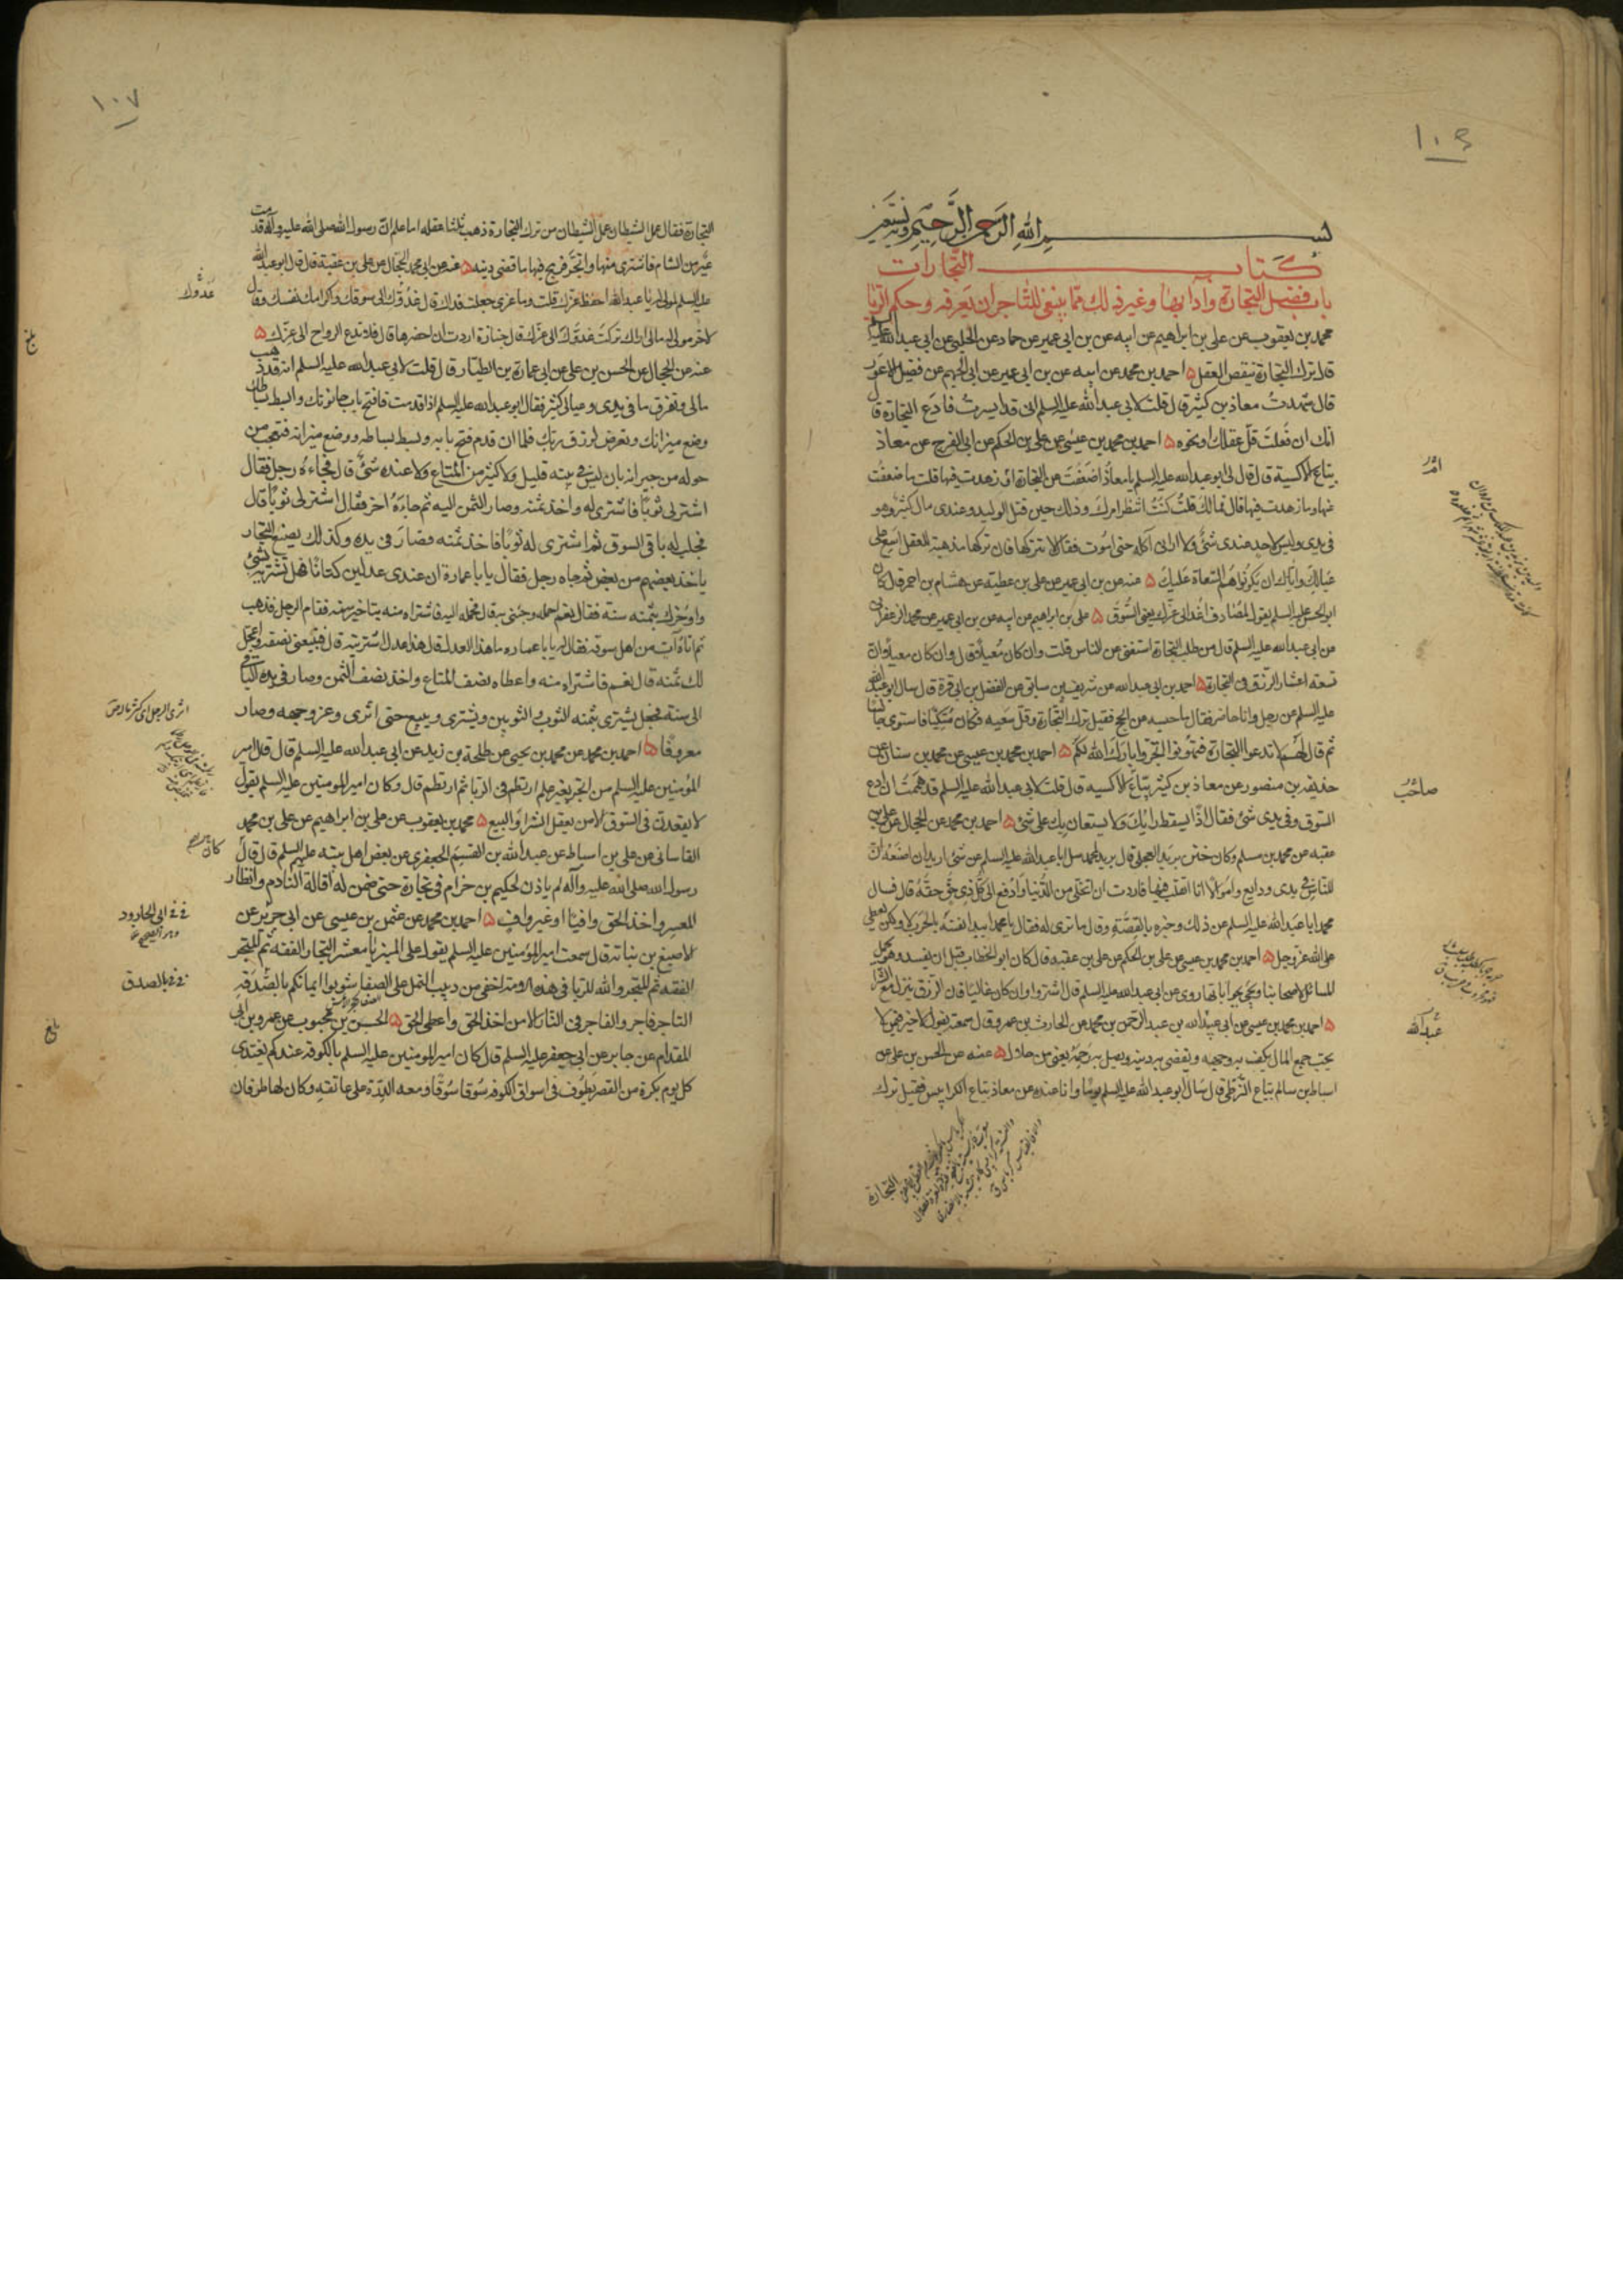 ١٠٦
بسم الله الرحمن الرحيم وبه نستعين
كتاب التجارات
باب فضل التجارة وآدابها وغير ذلك مما ينبغي للتاجر ان يعرفه وحكم الربا
محمد بن يعقوب عن علي بن ابراهيم عن ابيه عن بن ابي عمير عن حماد عن الحلبي عن ابي عبد الله عليه السلم
قال ترك التجارة ينقص العقل ۵ احمد بن محمد عن ابيه عن بن ابي عمير عن ابي الجهم عن فضيل الاعور
قال شهدت معاذ بن كثير قال قلت لابي عبد الله عليه السلم اني قد ايسرت فادع التجارة قال
انك ان فعلت قل عقلك او نحوه ۵ احمد بن محمد بن عيسى عن علي بن الحكم عن ابي الفرج عن معاذ
بياع الاكسية قال قال لي ابو عبد الله عليه السلم يا معاذ اضعفت عن التجارة او زهدت فيها قلت ما ضعفت
عنها وما زهدت فيها قال فما لك قلت كنت انتظر امرك وذلك حين قتل الوليد وعندي مال كثير وهو
في يدي وليس لاحد عندي شئ ولا اراني آكله حتى اموت فقال لا تتركها فان تركها مذهبة للعقل اسع على
عيالك واياك ان يكونوا هم السعاة عليك ۵ عنه عن بن ابي عمير عن علي بن عطية عن هشام بن احمر قال كان
ابو الحسن عليه السلم يقول لمصادف اغد الى عزك يعني السوق ۵ علي بن ابراهيم عن ابيه عن بن ابي عمير عن محمد الزعفراني
عن ابي عبد الله عليه السلم قال من طلب التجارة استغنى عن الناس قلت وان كان معيلا قال وان كان معيلا وان
تسعة اعشار الرزق في التجارة ۵ احمد بن ابي عبد الله عن شريف بن سابق عن الفضل بن ابي قرة قال سال ابو عبد الله
عليه السلم عن رجل وانا حاضر فقال ما حبسه عن الحج فقيل ترك التجارة وقل سعيه فكان متكئا فاستوى جالسا
ثم قال لهم لا تدعوا التجارة فتهونوا اتجروا بارك الله لكم ۵ احمد بن محمد بن عيسى عن محمد بن سنان عن
حذيفة بن منصور عن معاذ بن كثير بياع الاكسيه قال قلت لابي عبد الله عليه السلم قد هممت ان ادع
السوق وفي يدي شئ فقال اذا يسقط رايك ولا يستعان بك على شئ ۵ احمد بن محمد عن الحجال عن علي بن
عقبه عن محمد بن مسلم وكان ختن بريد العجلي قال بريد لمحمد سل ابا عبد الله عليه السلم عن شئ اريد ان اصنعه ان
للناس في يدي ودايع واموالا انا اتقلب فيها فاردت ان اتخلى من الدنيا وادفع الى كل ذي حق حقه قال فسال
محمد ابا عبد الله عليه السلم عن ذلك وخبره بالقصة وقال ما ترى له فقال يا محمد ايبدا نفسه بالحرب لا ولكن يعطي
على الله عز وجل ۵ احمد بن محمد بن عيسى عن علي بن الحكم عن علي بن عقبه قال كان ابو الخطاب قبل ان يفسد وهو يحمل
المسائل لاصحابنا ويجئ بجواباتها روى عن ابي عبد الله عليه السلم قال اشتروا وان كان غاليا فان الرزق ينزل مع الشراء
۵ احمد بن محمد بن عيسى عن ابي عبد الله بن عبد الرحمن بن محمد عن الحارث بن عمرو قال سمعته يقول لا خير فيمن لا
يحب جمع المال يكف به وجهه ويقضي به دينه ويصل به رحمه يعني من حلال ۵ عنه عن الحسن بن علي عن
اسباط بن سالم بياع الزطي قال سال ابو عبد الله عليه السلم يوما وانا عنده عن معاذ بياع الكرابيس فقيل ترك
التجارة
امر
صاحب
عبد الله
١٠٧
التجارة فقال عمل الشيطان عمل الشيطان من ترك التجارة ذهب ثلثا عقله اما علم ان رسول الله صلى الله عليه وآله قدمت
عير من الشام فاشترى منها واتجر فربح فيها ما قضى دينه ۵ عنه عن ابي محمد الحجال عن علي بن عقبة قال قال ابو عبد الله
عليه السلم لمولى له يا عبد الله احفظ عزك قلت وما عزي جعلت فداك قال غدوك الى سوقك واكرامك نفسك وقال
لآخر مولى له مالي اراك تركت غدوك الى عزك قال جنازة اردت ان احضرها قال فلا تدع الرواح الى عزك ۵
عنه عن الحجال عن الحسن بن علي عن ابي عمارة بن الطيار قال قلت لابي عبد الله عليه السلم انه قد ذهب
مالي وتفرق ما في يدي وعيالي كثير فقال ابو عبد الله عليه السلم اذا قدمت فافتح باب حانوتك وابسط بساطك
وضع ميزانك وتعرض لرزق ربك فلما ان قدم فتح بابه وبسط بساطه ووضع ميزانه فتعجب من
حوله من جيرانه بان ليس في بيته قليل ولا كثير من المتاع ولا عنده شئ قال فجاءه رجل فقال
اشتر لي ثوبا فاشترى له واخذ ثمنه وصار الثمن اليه ثم جاءه آخر فقال اشتر لي ثوبا قال
فجلب له باقي السوق ثم اشترى له ثوبا فاخذ ثمنه فصار في يده وكذلك يصنع التجار
ياخذ بعضهم من بعض ثم جاه رجل فقال يا با عمارة ان عندي عدلين كتانا فهل تشتريه بشئ
واوخرك بثمنه سنة فقال نعم احمله وجئني به قال فحمله اليه فاشتراه منه بتاخير سنه فقام الرجل فذهب
ثم اتاه آت من اهل سوقه فقال له يا با عماره ما هذا العدل قال هذا عدل اشتريته قال فتبيعني نصفه واعجل
لك ثمنه قال نعم فاشتراه منه واعطاه نصف المتاع واخذ نصف الثمن وصار في يده الباقي
الى سنة فجعل يشتري بثمنه الثوب والثوبين ويشتري ويبيع حتى اثرى وعز وجهه وصار
معروفا ۵ احمد بن محمد عن محمد بن يحيى عن طلحة بن زيد عن ابي عبد الله عليه السلم قال قال امير
المؤمنين عليه السلم من اتجر بغير علم ارتطم في الربا ثم ارتطم قال وكان امير المومنين عليه السلم يقول
لا يقعدن في السوق الا من يعقل الشرا والبيع ۵ محمد بن يعقوب عن علي بن ابراهيم عن علي بن محمد
القاساني عن علي بن اسباط عن عبد الله بن القسم الجعفري عن بعض اهل بيته عليهم السلم قال قال
رسول الله صلى الله عليه وآله لم ياذن لحكيم بن حزام في تجارة حتى ضمن له اقالة النادم وانظار
المعسر واخذ الحق وافيا او غير واف ۵ احمد بن محمد عن عثمن بن عيسى عن ابي جرير عن
الاصبغ بن نباته قال سمعت امير المؤمنين عليه السلم يقول على المنبر يا معشر التجار الفقه ثم المتجر
الفقه ثم المتجر والله للربا في هذه الامة اخفى من دبيب النمل على الصفا شوبوا ايمانكم بالصدقة
التاجر فاجر والفاجر في النار الا من اخذ الحق واعطى الحق ۵ الحسن بن محبوب عن عمرو بن ابي
المقدام عن جابر عن ابي جعفر عليه السلم قال كان امير المومنين عليه السلم بالكوفه عندكم يغتدي
كل يوم بكرة من القصر يطوف في اسواق الكوفه سوقا سوقا ومعه الدرة على عاتقه وكان لها طرفان
غدوك
بلغ
اثرى الرجل اي كثر ماله ص
في في ابي الجارود
في في بالصدق
بلغ